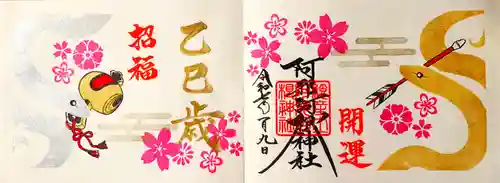 開運
阿邪訶根神社
令和七年一月九日
乙巳歳
招福